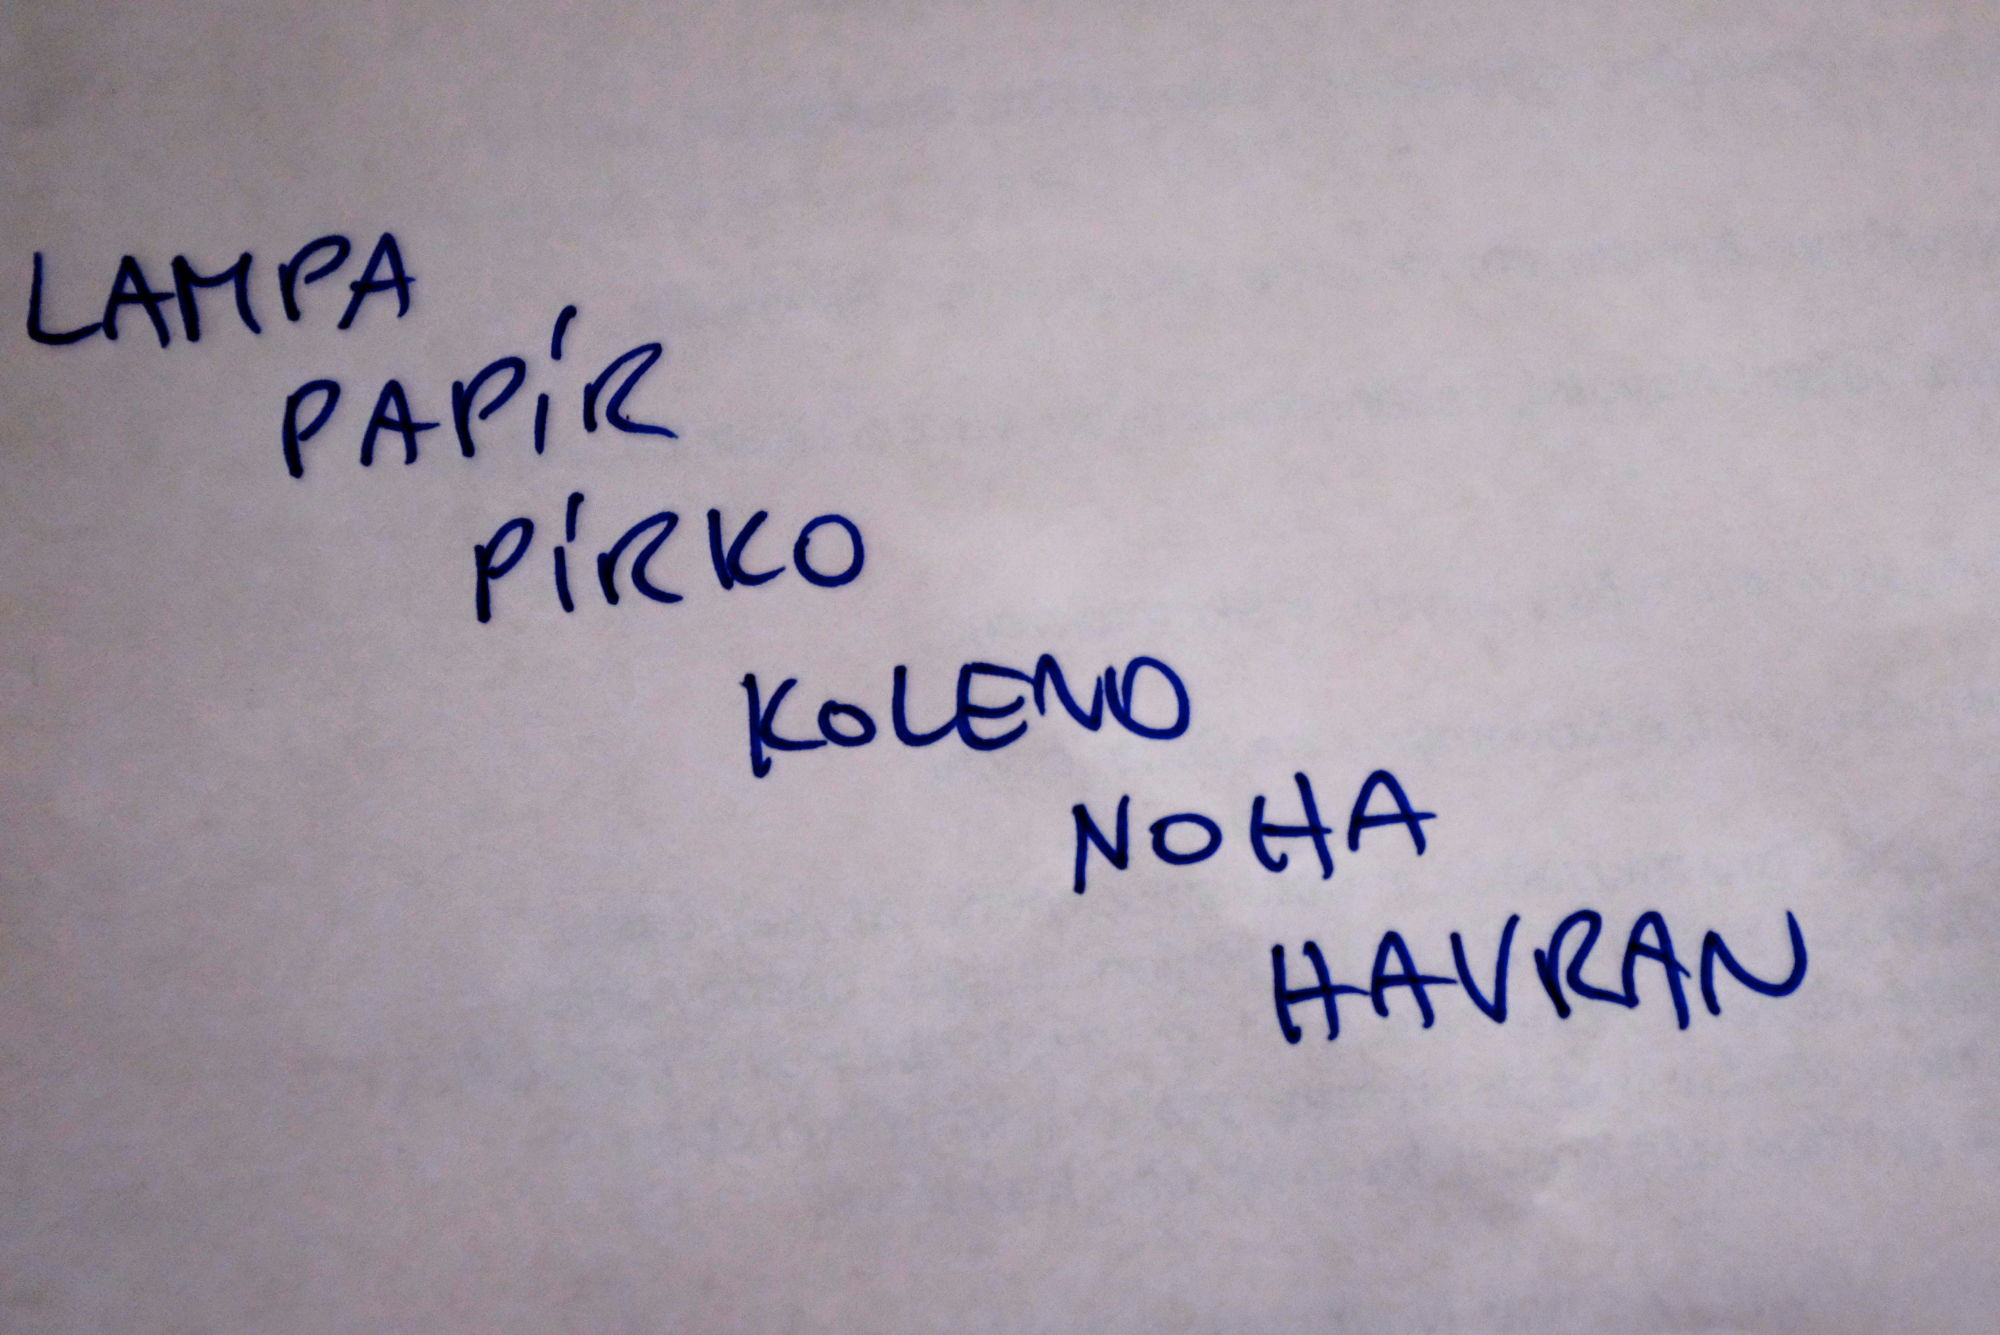 LAMPA
PAPÍR
PÍRKO
KOLENO
NOHA
HAVRAN